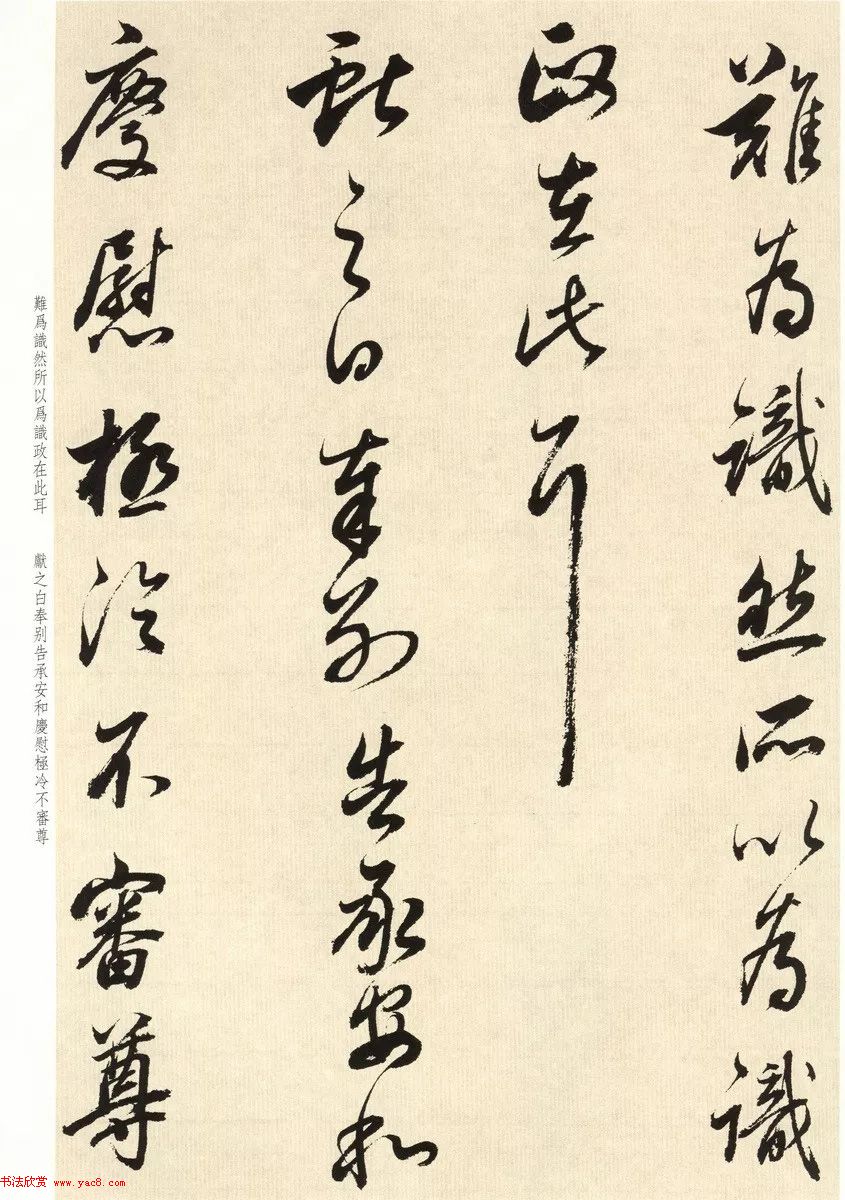 難為識然所以為識
政在此耳
獻之白奉別告承安和
慶慰極冷不審尊
難爲識然所以爲識政在此耳 獻之白奉别告承安和慶慰極冷不審尊
书法欣赏
www.yac8.com